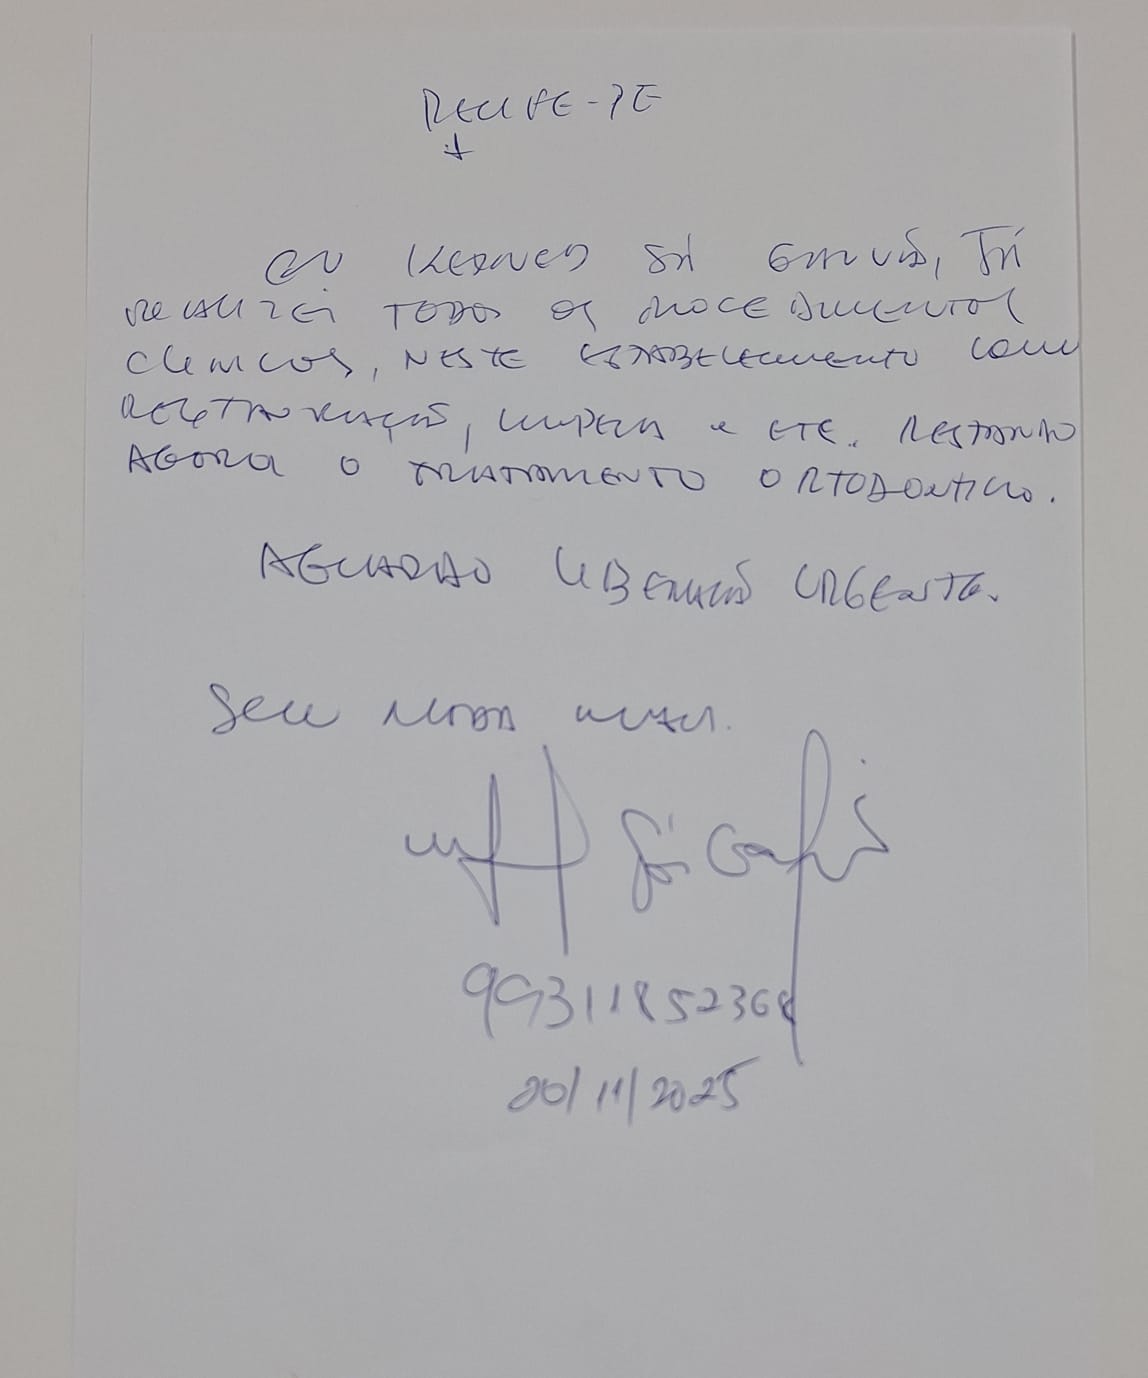 RECIFE-PE
EU SÁ GALVÃO, JÁ
REALIZEI TODOS OS PROCEDIMENTOS
CLINICOS, NESTE ESTABELECIMENTO COMO
RESTAURAÇÃO, LIMPEZA e ETC. RESTANDO
AGORA O TRATAMENTO ORTODONTICO.
AGUARDO LIBERAÇÃO URGENTE.
Sem MAIS.
99311852368
20/11/2025